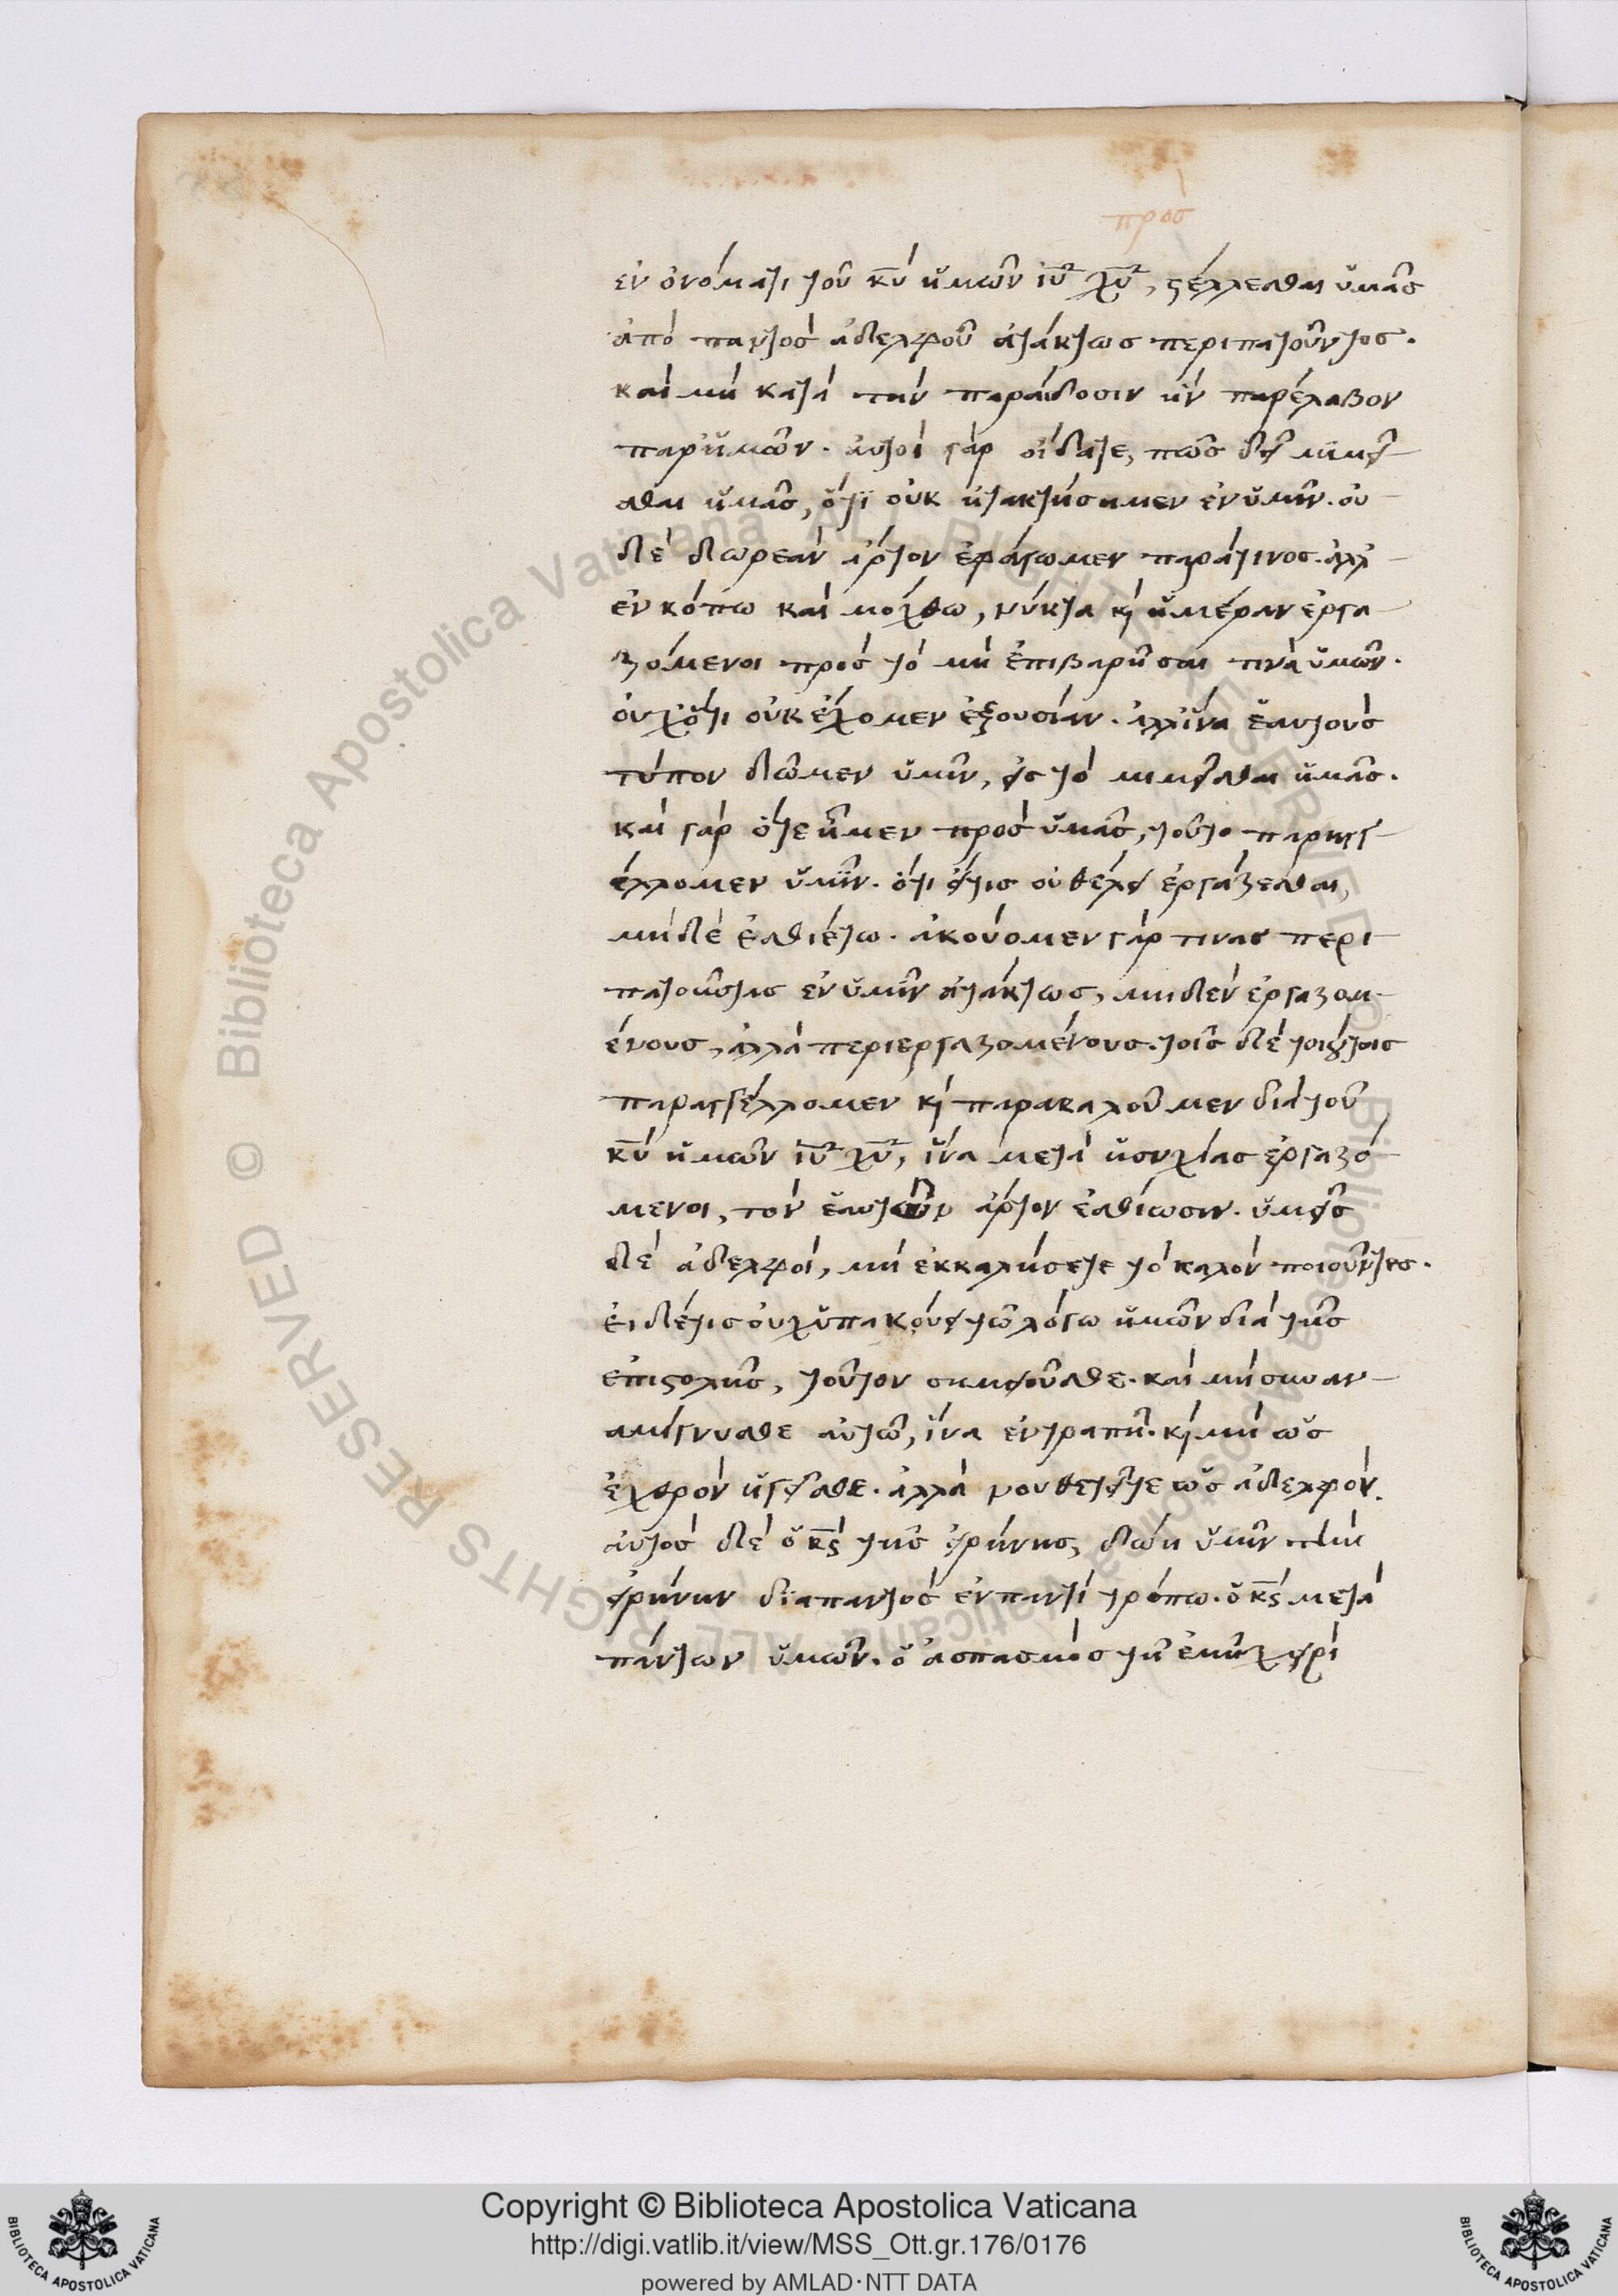 πρὸς
ἐν ὀνόματι τοῦ κ̅υ̅ ἡμῶν ἰ̅υ̅ χ̅υ̅, στέλλεσθαι ὑμᾶς
ἀπὸ παντὸς ἀδελφοῦ ἀτάκτως περιπατοῦντος.
καὶ μὴ κατὰ τὴν παράδοσιν ἣν παρέλαβον
παρ' ἡμῶν. αὐτοὶ γὰρ οἴδατε, πῶς δεῖ μιμεῖ
σθαι ἡμᾶς, ὅτι οὐκ ἠτακτήσαμεν ἐν ὑμῖν. οὐ
δὲ δωρεὰν ἄρτον ἐφάγωμεν παρά τινος. ἀλλ'
ἐν κόπω καὶ μόχθω, νύκτα κ̀ ἡμέραν ἐργα
ζόμενοι πρὸς τὸ μὴ ἐπιβαρῆσαι τινὰ ὑμῶν.
οὐχ ὅτι οὐκ ἔχομεν ἐξουσίαν. ἀλλ' ἵνα ἑαυτοὺς
τύπον δῶμεν ὑμῖν, εἰς τὸ μιμεῖσθαι ἡμᾶς.
καὶ γὰρ ὅτε ἦμεν πρὸς ὑμᾶς, τοῦτο παρηγγ
έλλομεν ὑμῖν. ὅτι εἴτις οὐ θέλει ἐργάζεσθαι,
μὴδὲ ἐσθιέτω. ἀκούομεν γάρ τινας περι
πατοῦντας ἐν ὑμῖν ἀτάκτως, μηδὲν ἐργαζομ
ένους, ἀλλὰ περιεργαζομένους. τοῖς δὲ τοιούτοις
παραγγέλλομεν κ̀ παρακαλοῦμεν διὰ τοῦ
κ̅υ̅ ἡμῶν ἰ̅υ̅ χ̅υ̅, ἵνα μετὰ ἡσυχίας ἐργαζό
μενοι, τὸν ἑαυτῶν ἄρτον ἐσθίωσιν. ὑμεῖς
δὲ ἀδελφοί, μὴ ἐκκακήσετε τὸ καλὸν ποιοῦντες.
εἰ δέ τις οὐχ ὑπακούει τῶ λόγω ἡμῶν διὰ τῆς
ἐπιστολῆς, τοῦτον σημειοῦσθε. καὶ μὴ συναν
αμίγνυσθε αὐτῶ, ἵνα ἐντραπῆ. κ̀ μὴ ὡς
ἐχθρὸν ἡγεῖσθε. ἀλλὰ νουθετεῖτε ὡς ἀδελφόν.
αὐτὸς δὲ ὁ κ̅ς̅ τῆς εἰρήνης, δώη ὑμῖν τὴν
εἰρήνην διαπαντὸς ἐν παντὶ τρόπω. ὁ κ̅ς̅ μετὰ
πάντων ὑμῶν. ὁ ἀσπασμὸς τῆ ἐμῆ χειρὶ
Copyright © Biblioteca Apostolica Vaticana
http://digi.vatlib.it/view/MSS_Ott.gr.176/0176
powered by AMLAD·NTT DATA